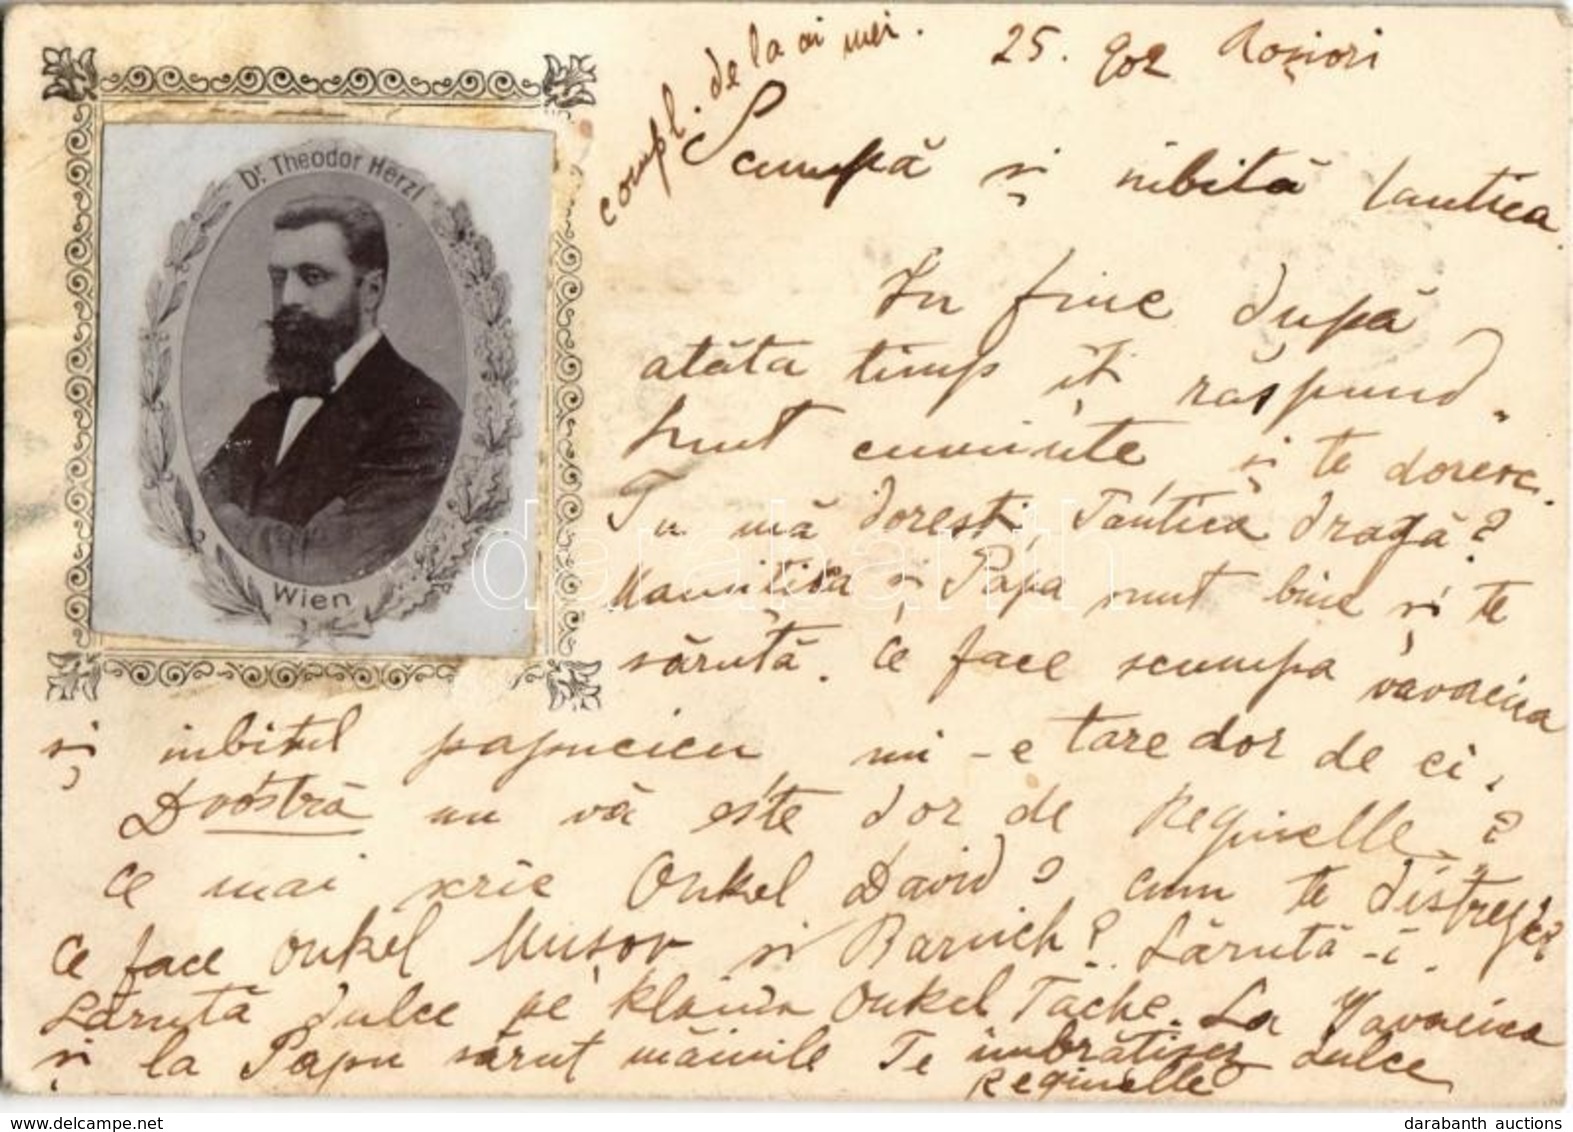 compl. de la ai mei.
25. 902 Roșiori
Scumpă și iubită Tantica.
In fine după
atâta timp îți răspund.
Sunt cuminte și te doresc.
Tu mă dorești, Tantica dragă?
Mamitica și Papa sunt bine și te
sărută. Ce face scumpa vavaeica
și iubitul papucicu mi-e tare dor de ei.
Dvostră nu vă este dor de Reginelle?
Ce mai scrie Onkel David? cum te distregi?
Ce face Onkel Mușov și Baruch? Sărută-i.
Sărută dulce pe Onkel Tache. La Vavaeica
și la Papu sărut mâinile Te îmbrățișez dulce
Reginelle
Dr. Theodor Herzl
Wien
darabanth
darabanth auctions